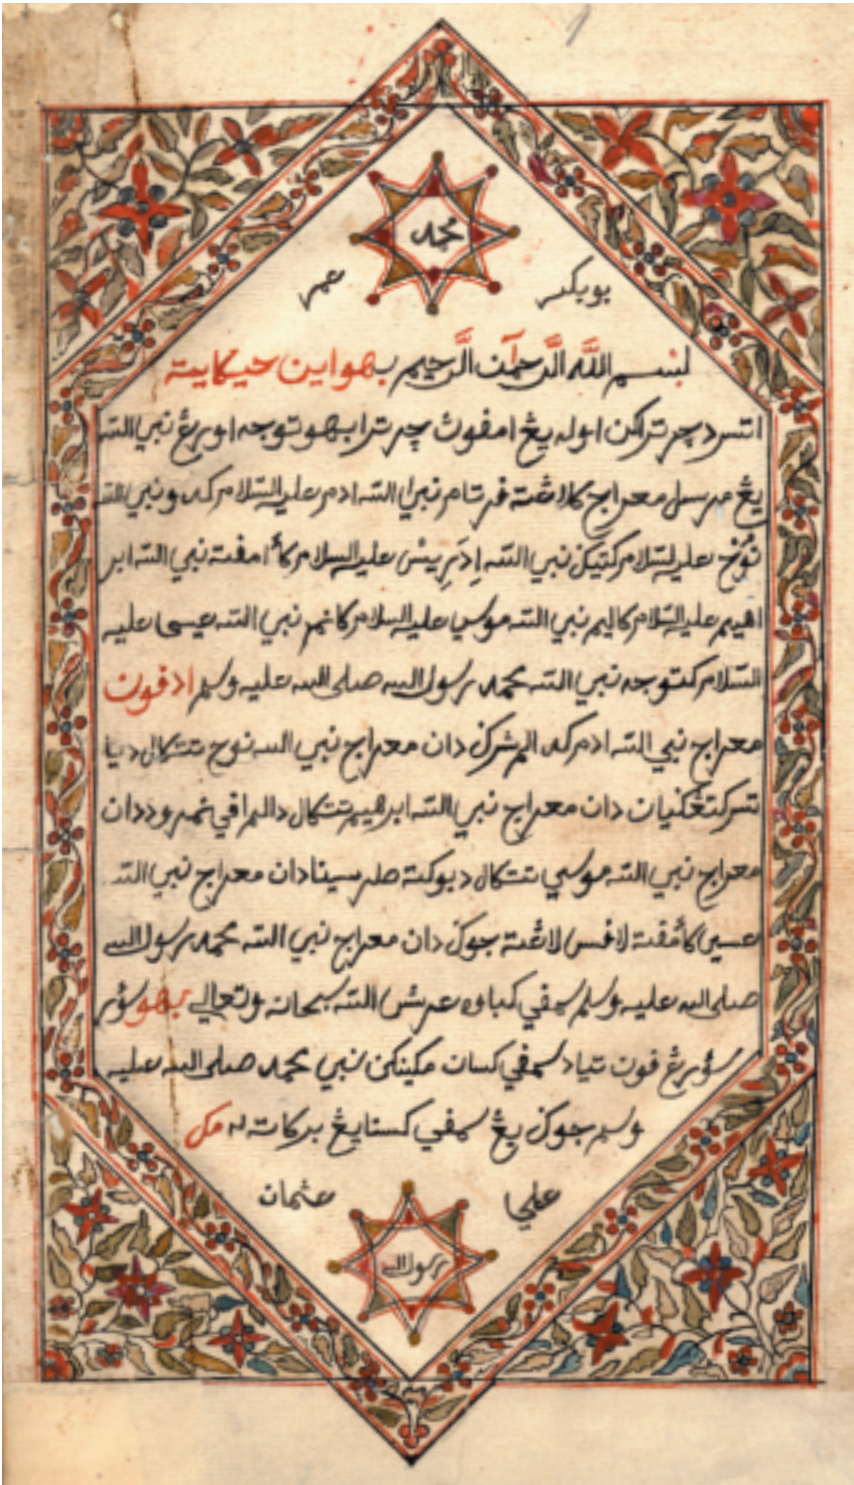 1
محمد
بوبكر عمر
بسم الله الرحمن الرحيم بهواين حكاية
اتس دچرتراکن اوله يڠ امفون چرترا بهو توجه اورڠ نبي الله
يڠ مرسل معراج كلاڠت فرتام نبي الله ادم عليه السلام كدو نبي الله
نوح عليه السلام كتيݢ نبي الله إدريس عليه السلام كأمفت نبي الله ابر
اهيم عليه السلام كاليم نبي الله موسي عليه السلام كانم نبي الله عيسى عليه
السلام كتوجه نبي الله محمد رسول الله صلى الله عليه وسلم ادفون
معراج نبي الله ادم كد دان معراج نبي الله نوح تتكال دنيا
دان معراج نبي الله ابرهيم تتكال دالم افي نمرود دان
معراج نبي الله موسي تتكال دبوكة طر سينا دان معراج نبي الله
عسىى كأمفت لافس لاڠت جوك دان معراج نبي الله محمد رسول الله
صلى الله عليه وسلم سمفي كباوه عرش الله سبحانه وتعالى بهو سؤر
سؤرڠ فون تياد سمفي كسان ملينكن نبي محمد صلى الله عليه
وسلم جوك يڠ سمفي كسنا يڠ بركات له مك
علي عثمان
رسول الله